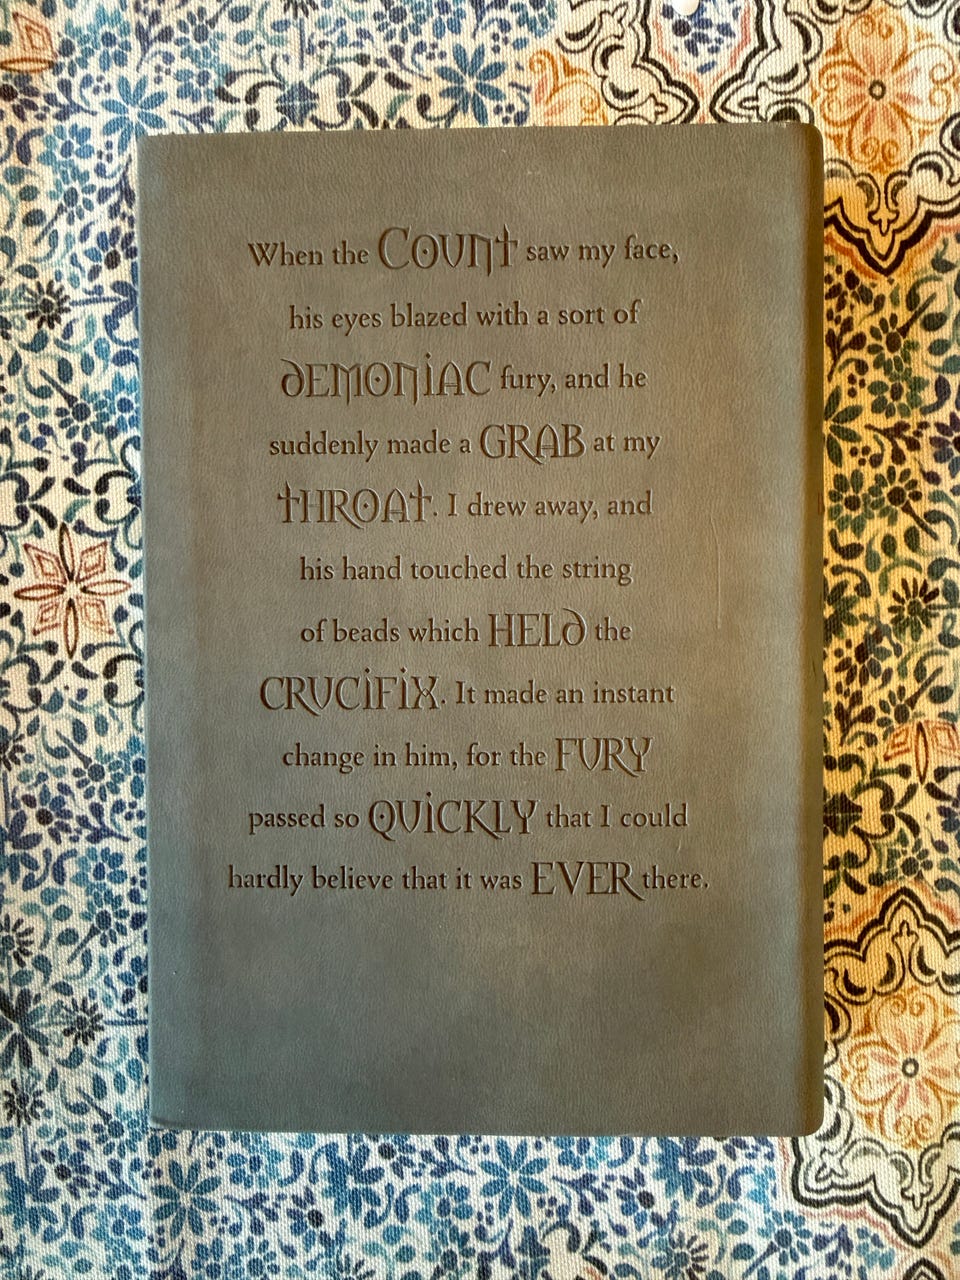 When the COUNT saw my face,
his eyes blazed with a sort of
DEMONIAC fury, and he
suddenly made a GRAB at my
THROAT. I drew away, and
his hand touched the string
of beads which HELD the
CRUCIFIX. It made an instant
change in him, for the FURY
passed so QUICKLY that I could
hardly believe that it was EVER there.